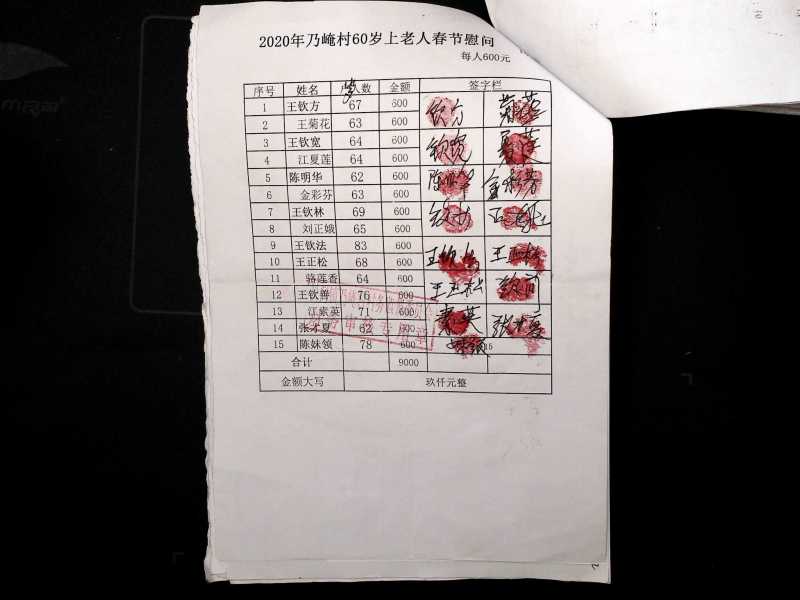 2020年乃崦村60岁上老人春节慰问
每人600元
序号 姓名 岁 人数 金额 签字栏
1 王钦方 67 600 钦方
2 王菊花 63 600
3 王钦宽 64 600 钦宽
4 江夏莲 64 600 夏莲
5 陈明华 62 600 陈明华
6 金彩芬 63 600 金彩芬
7 王钦林 69 600
8 刘正娥 65 600
9 王钦法 83 600 王钦法
10 王正松 68 600 王正松
11 骆莲香 64 600 王正松
12 王钦善 76 600
13 江素英 71 600 素英
14 张才夏 62 600 张才夏
15 陈妹领 78 600 妹领 15
合计 9000
金额大写 玖仟元整